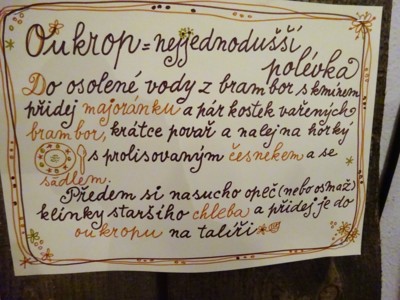 Oukrop = nejjednodušší
polévka
Do osolené vody z brambor s kmínem
přidej majoránku a pár kostek vařených
brambor, krátce povař a nalej na horký
s prolisovaným česnekem a se
sádlem.
Předem si nasucho opeč (nebo osmaž)
klínky staršího chleba a přidej je do
oukropu na talíři